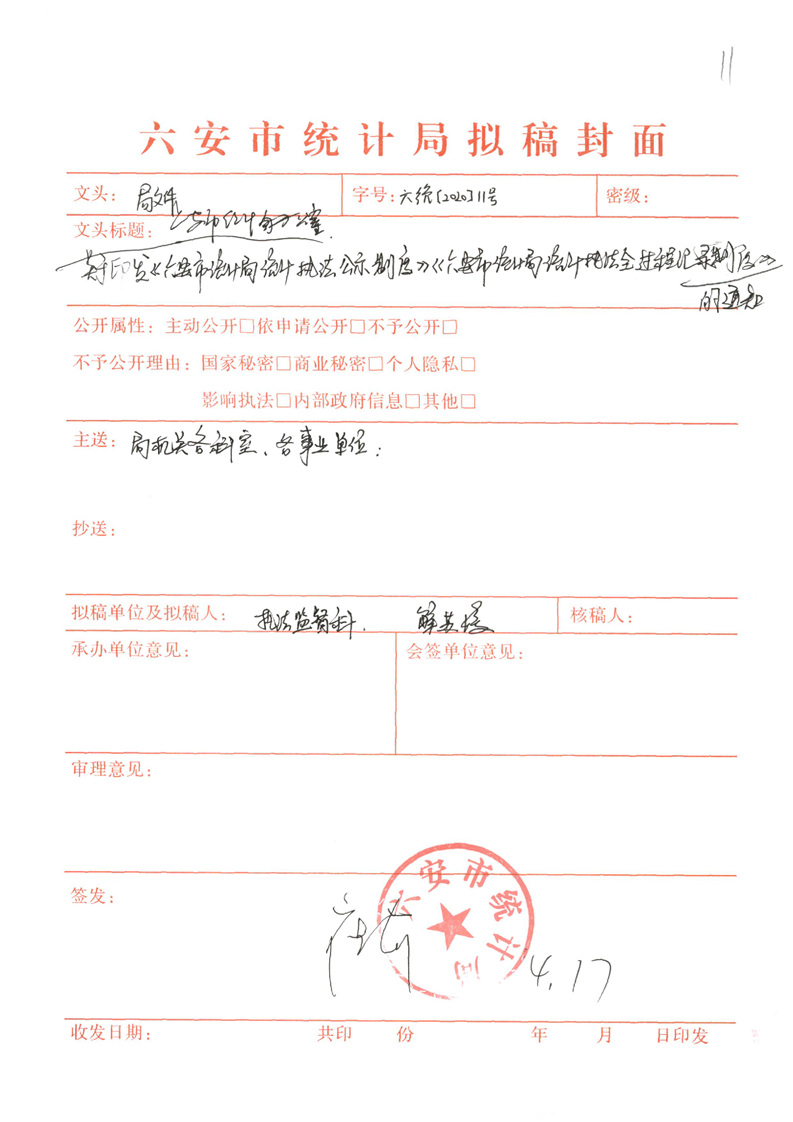 11
六安市统计局拟稿封面
文头： 局文件 字号：六统〔2020〕11号 密级：
文头标题： 六安市统计局办公室
关于印发《六安市统计局统计执法公示制度》《六安市统计局统计执法全过程记录制度》
的通知
公开属性：主动公开□依申请公开□不予公开□
不予公开理由：国家秘密□商业秘密□个人隐私□
影响执法□内部政府信息□其他□
主送：局机关各科室、各事业单位：
抄送：
拟稿单位及拟稿人： 执法监督科. 核稿人：
承办单位意见： 会签单位意见：
审理意见：
六安市统计局
签发： 4.17
收发日期： 共印 份 年 月 日印发